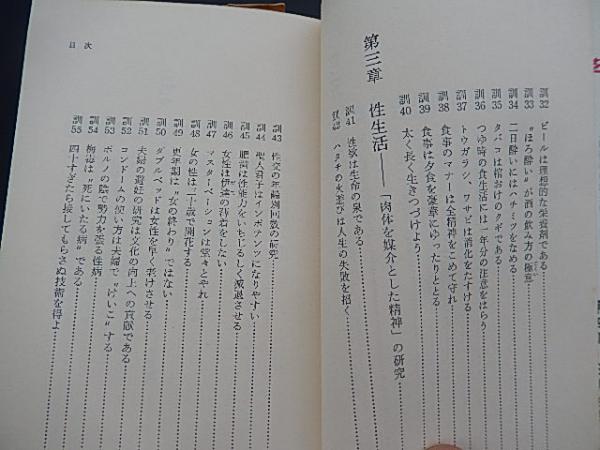 訓32 ビールは理想的な栄養剤である
訓33 "ほろ酔い"が酒の飲み方の極意
訓34 二日酔いにはハチミツをなめる
訓35 タバコは棺おけのクギである
訓36 つゆ時の食生活には一年分の注意をはらう
訓37 トウガラシ、ワサビは消化をたすける
訓38 食事のマナーは全精神をこめて守れ
訓39 食事は夕食を豪華にゆったりととる
訓40 太く長く生きつづけよう
第三章 性生活――「肉体を媒介とした精神」の研究
訓41 性欲は生命の泉である
訓42 ハタチの火遊びは人生の失敗を招く
目次
訓43 性交の年齢別回数の研究
訓44 聖人君子はインポテンツになりやすい
訓45 肥満は性能力をいちじるしく減退させる
訓46 女性は伊達の薄着をしない
訓47 マスターベーションは堂々とやれ
訓48 女の性は二十歳で開花する
訓49 更年期は"女の終わり"ではない
訓50 ダブルベッドは女性を早く老けさせる
訓51 夫婦の避妊の研究は文化の向上への貢献である
訓52 コンドームの使い方は夫婦で"けいこ"する
訓53 ポルノの陰で勢力を張る性病
訓54 梅毒は"死にいたる病"である
訓55 四十すぎたら接してもらさぬ技術を得よ